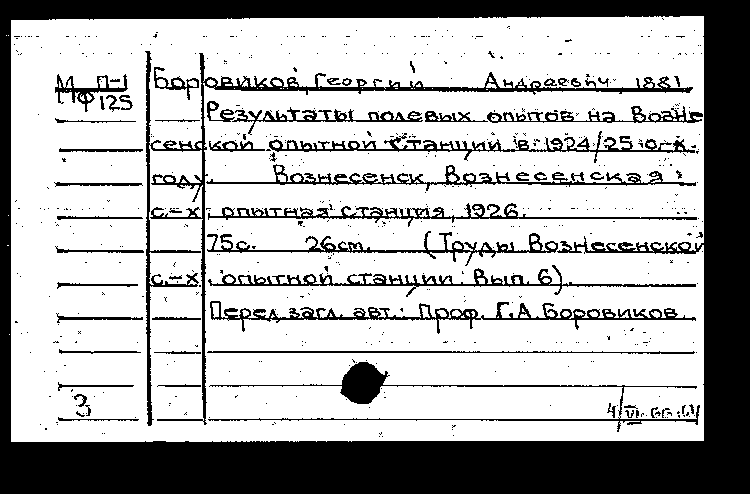 М П-1 Боровиков, Георгий Андреевич, 1881
МФ125
Результаты полевых опытов на Возне-
сенской опытной станции в 1924/25 с-х.
году. Вознесенск, Вознесенская
с.-х. опытная станция, 1926.
75с. 26см. (Труды Вознесенской
с.-х. опытной станции. Вып. 6).
Перед загл. авт.: Проф. Г.А. Боровиков.
3 4/VI-66